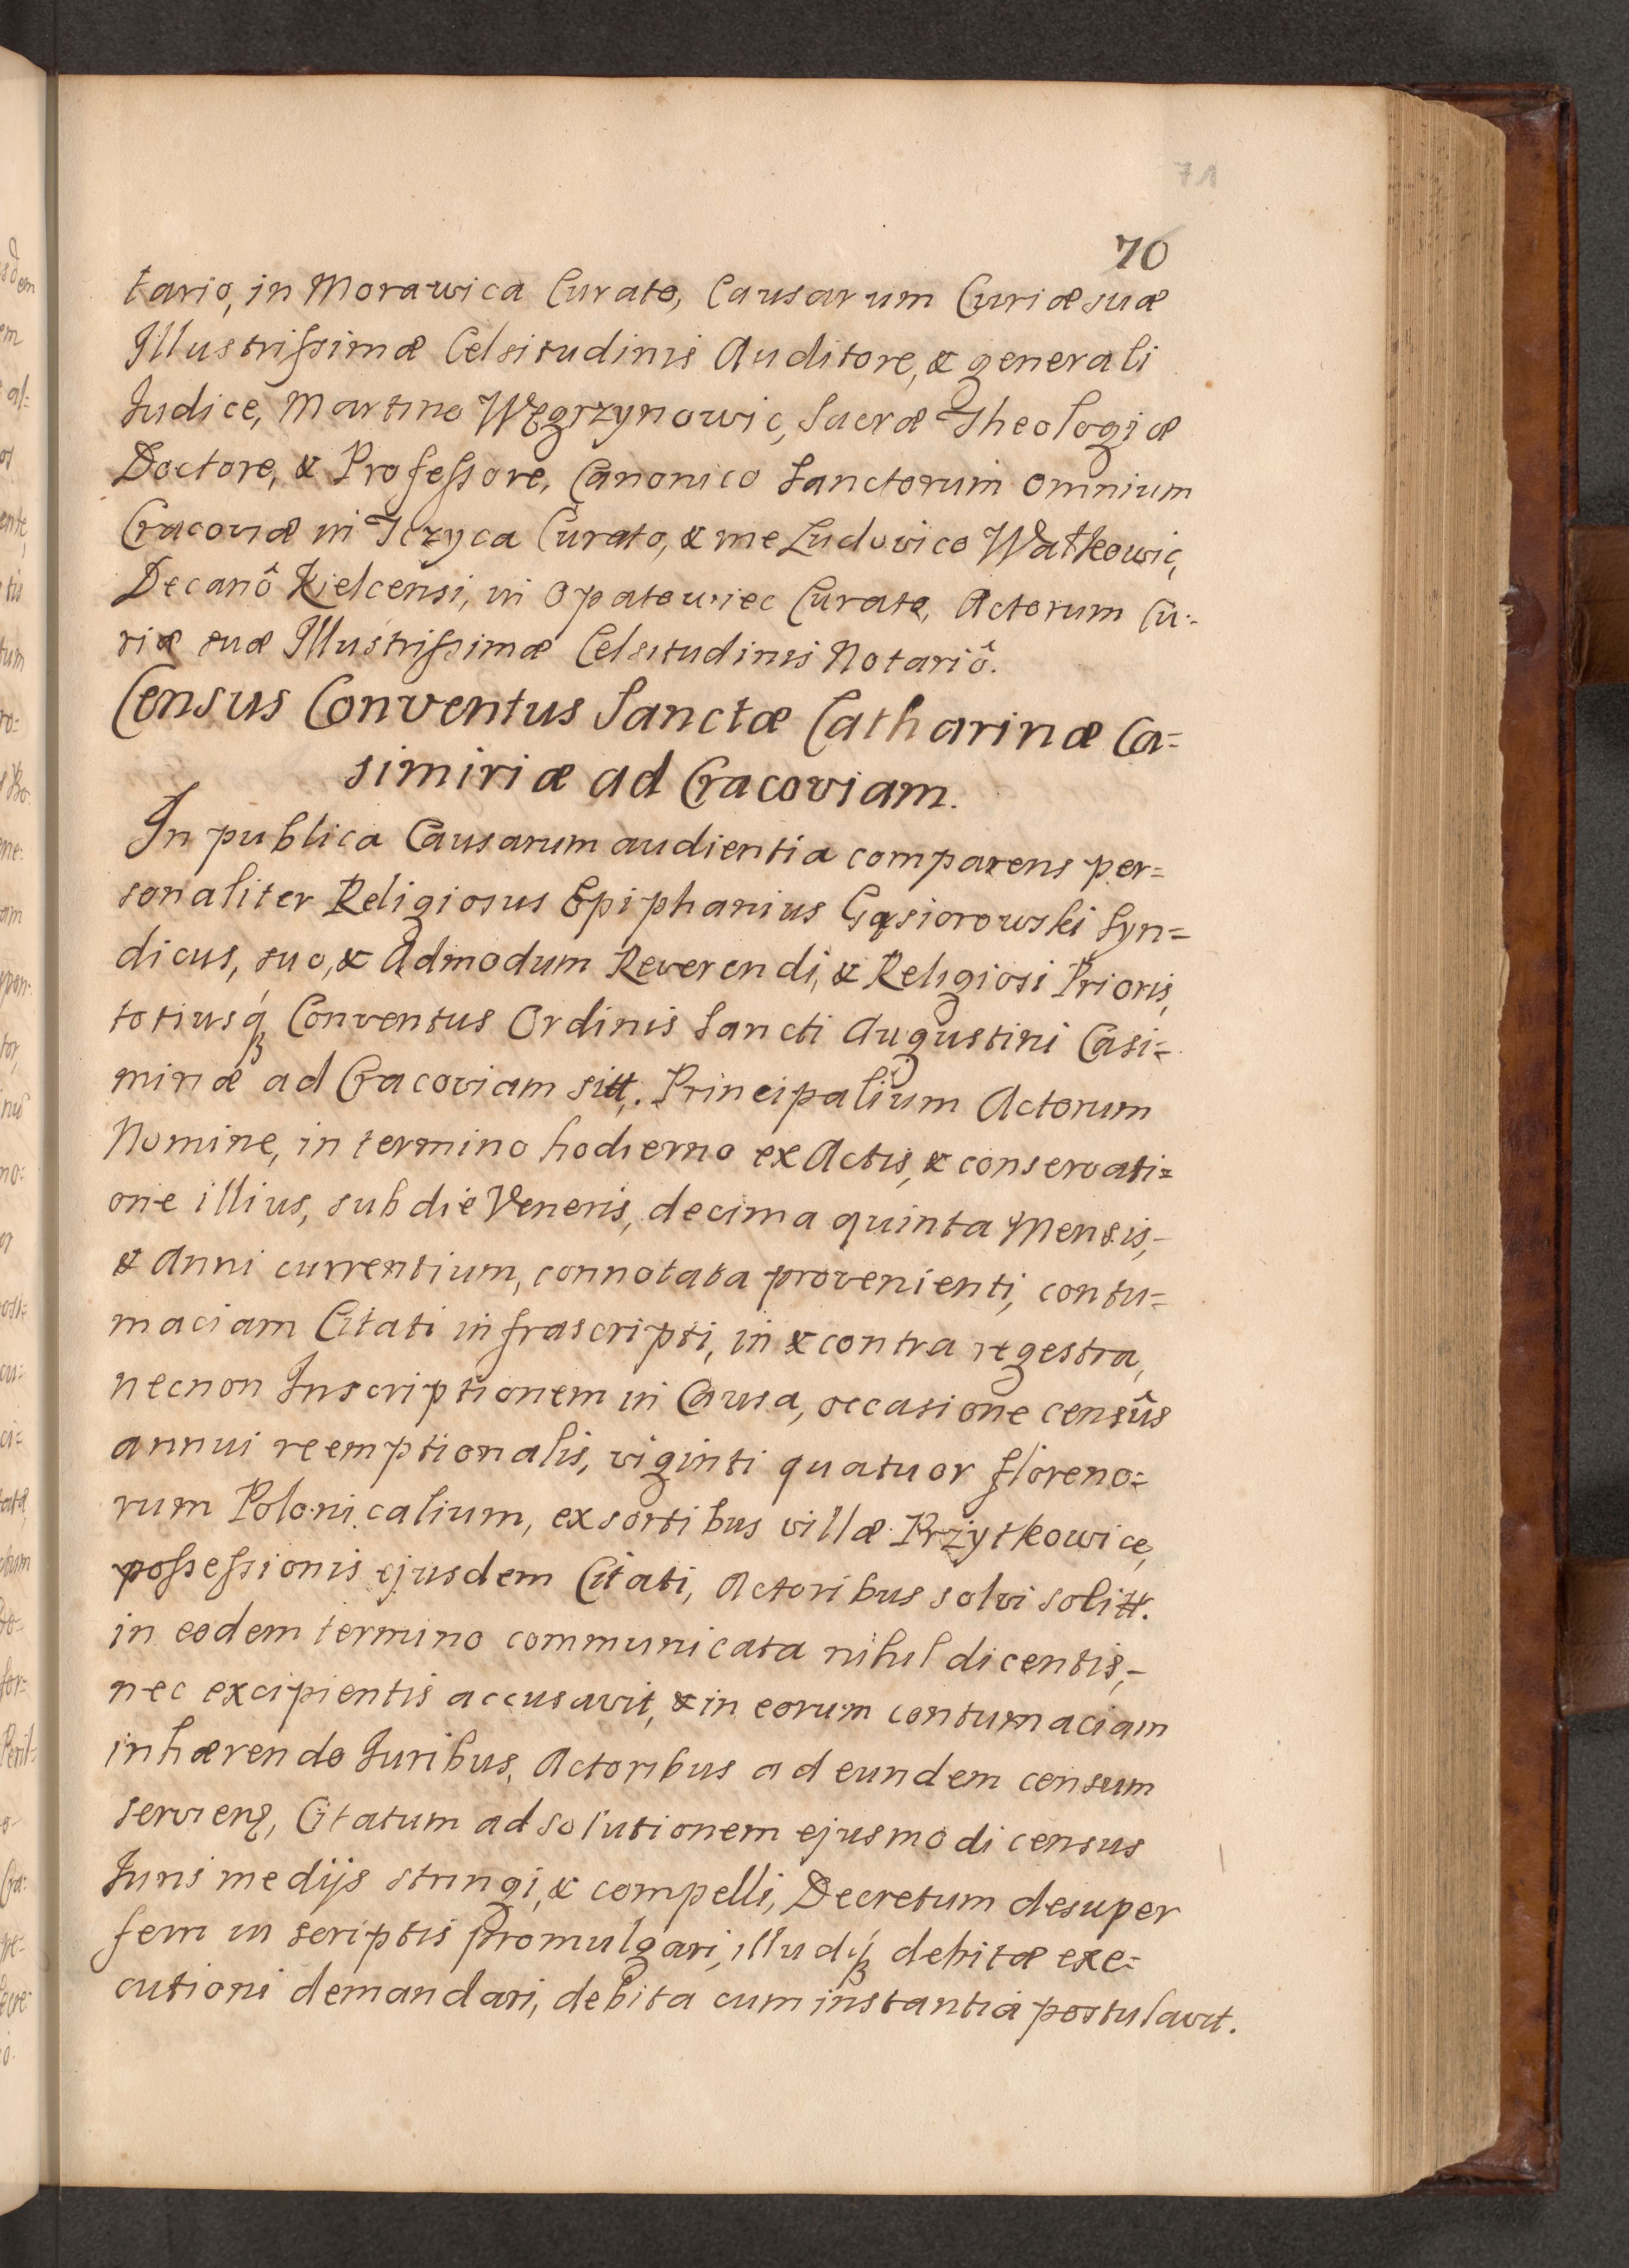 71
70
tario, in Morawica Curato, Causarum Curiæ suæ
Illustrissimæ Celsitudinis Auditore, & generali
Judice, Martino Węgrzynowic, Sacræ Theologiæ
Doctore, & Professore, Canonico Sanctorum Omnium
Cracoviæ in Tczyca Curato, & me Ludovico Watkowic,
Decanô Kielcensi, in Opatowiec Curato, Actorum Cu-
riæ suæ Illustrissimæ Celsitudinis Notariô.
Census Conventus Sanctæ Catharinæ Ca=
simiriæ ad Cracoviam.
In publica Causarum audientia comparens per=
sonaliter Religiosus Epiphanius Gąsiorowski Syn=
dicus, suo, & Admodum Reverendi, & Religiosi Prioris,
totiusq́ꝫ Conventus Ordinis Sancti Augustini Casi=
miriæ ad Cracoviam sitt. Principalium Actorum
Nomine, in termino hodierno ex Actis, & conservati=
one illius, sub die Veneris, decima quinta Mensis,
& Anni currentium, connotata provenienti, contu=
maciam Citati infrascripti, in & contra regestra,
necnon Inscriptionem in Causa, occasione censûs
annui reemptionalis, viginti quatuor floreno=
rum Polonicalium, ex sortibus villæ Przytkowice,
possessionis ejusdem Citati, Actoribus solvi solitt.
in eodem termino communicata nihil dicentis,
nec excipientis accusavit, & in eorum contumaciam
inhærendo Juribus, Actoribus ad eundem censum
servienꝭ, Citatum ad solutionem ejusmodi census
Juris medijs stringi, & compelli, Decretum desuper
ferri in scriptis promulgari, illudq́ꝫ debitæ exe=
cutioni demandari, debita cum instantia postulavit.